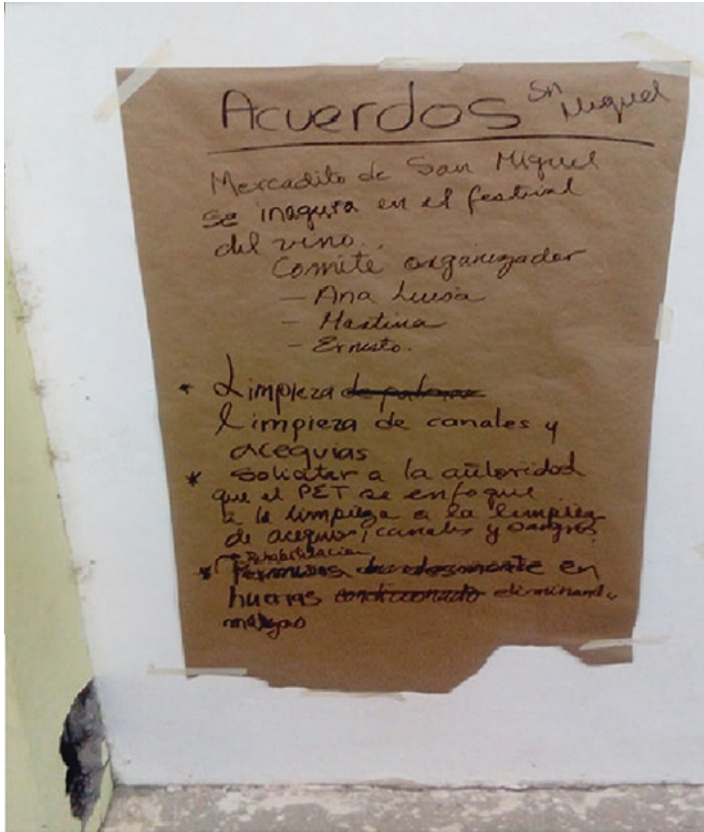 Acuerdos Sn Miguel
Mercadito de San Miguel
se inagura en el festival
del vino.
Comite organizador
- Ana Luisa
- Martina
- Ernesto.
* Limpieza
Limpieza de canales y
acequias
* Solicitar a la autoridad
que el PET se enfoque
a la limpieza a la limpieza
de acequias, canales y
* Rehabilitación
en
huertas condicionado eliminando